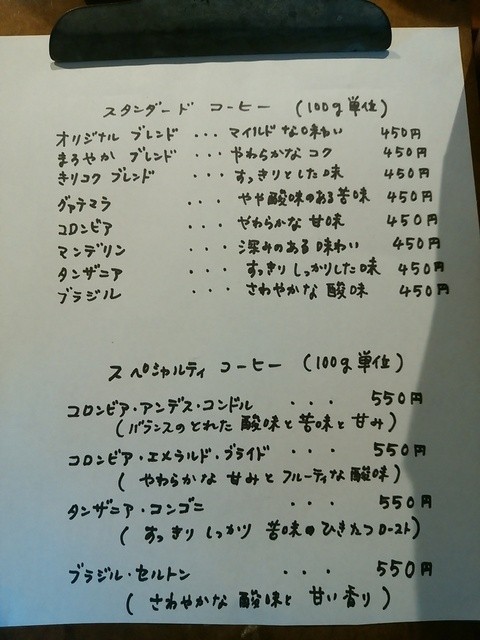 スタンダード コーヒー (100g単位)
オリジナル ブレンド ・・・ マイルドな味わい 450円
まろやか ブレンド ・・・ やわらかな コク 450円
きりコク ブレンド ・・・ すっきりとした味 450円
グァテマラ ・・・ やや酸味のある苦味 450円
コロンビア ・・・ やわらかな 甘味 450円
マンデリン ・・・ 深みのある 味わい 450円
タンザニア ・・・ すっきり しっかりした味 450円
ブラジル ・・・ さわやかな 酸味 450円
スペシャルティ コーヒー (100g単位)
コロンビア・アンデス・コンドル ・・・ 550円
(バランスのとれた 酸味と苦味と甘み)
コロンビア・エメラルド・ブライド ・・・ 550円
( やわらかな 甘みと フルーティな酸味)
タンザニア・コンゴニ ・・・ 550円
( すっきり しっかり 苦味のひきたつロースト)
ブラジル・セルトン ・・・ 550円
( さわやかな 酸味と 甘い香り )